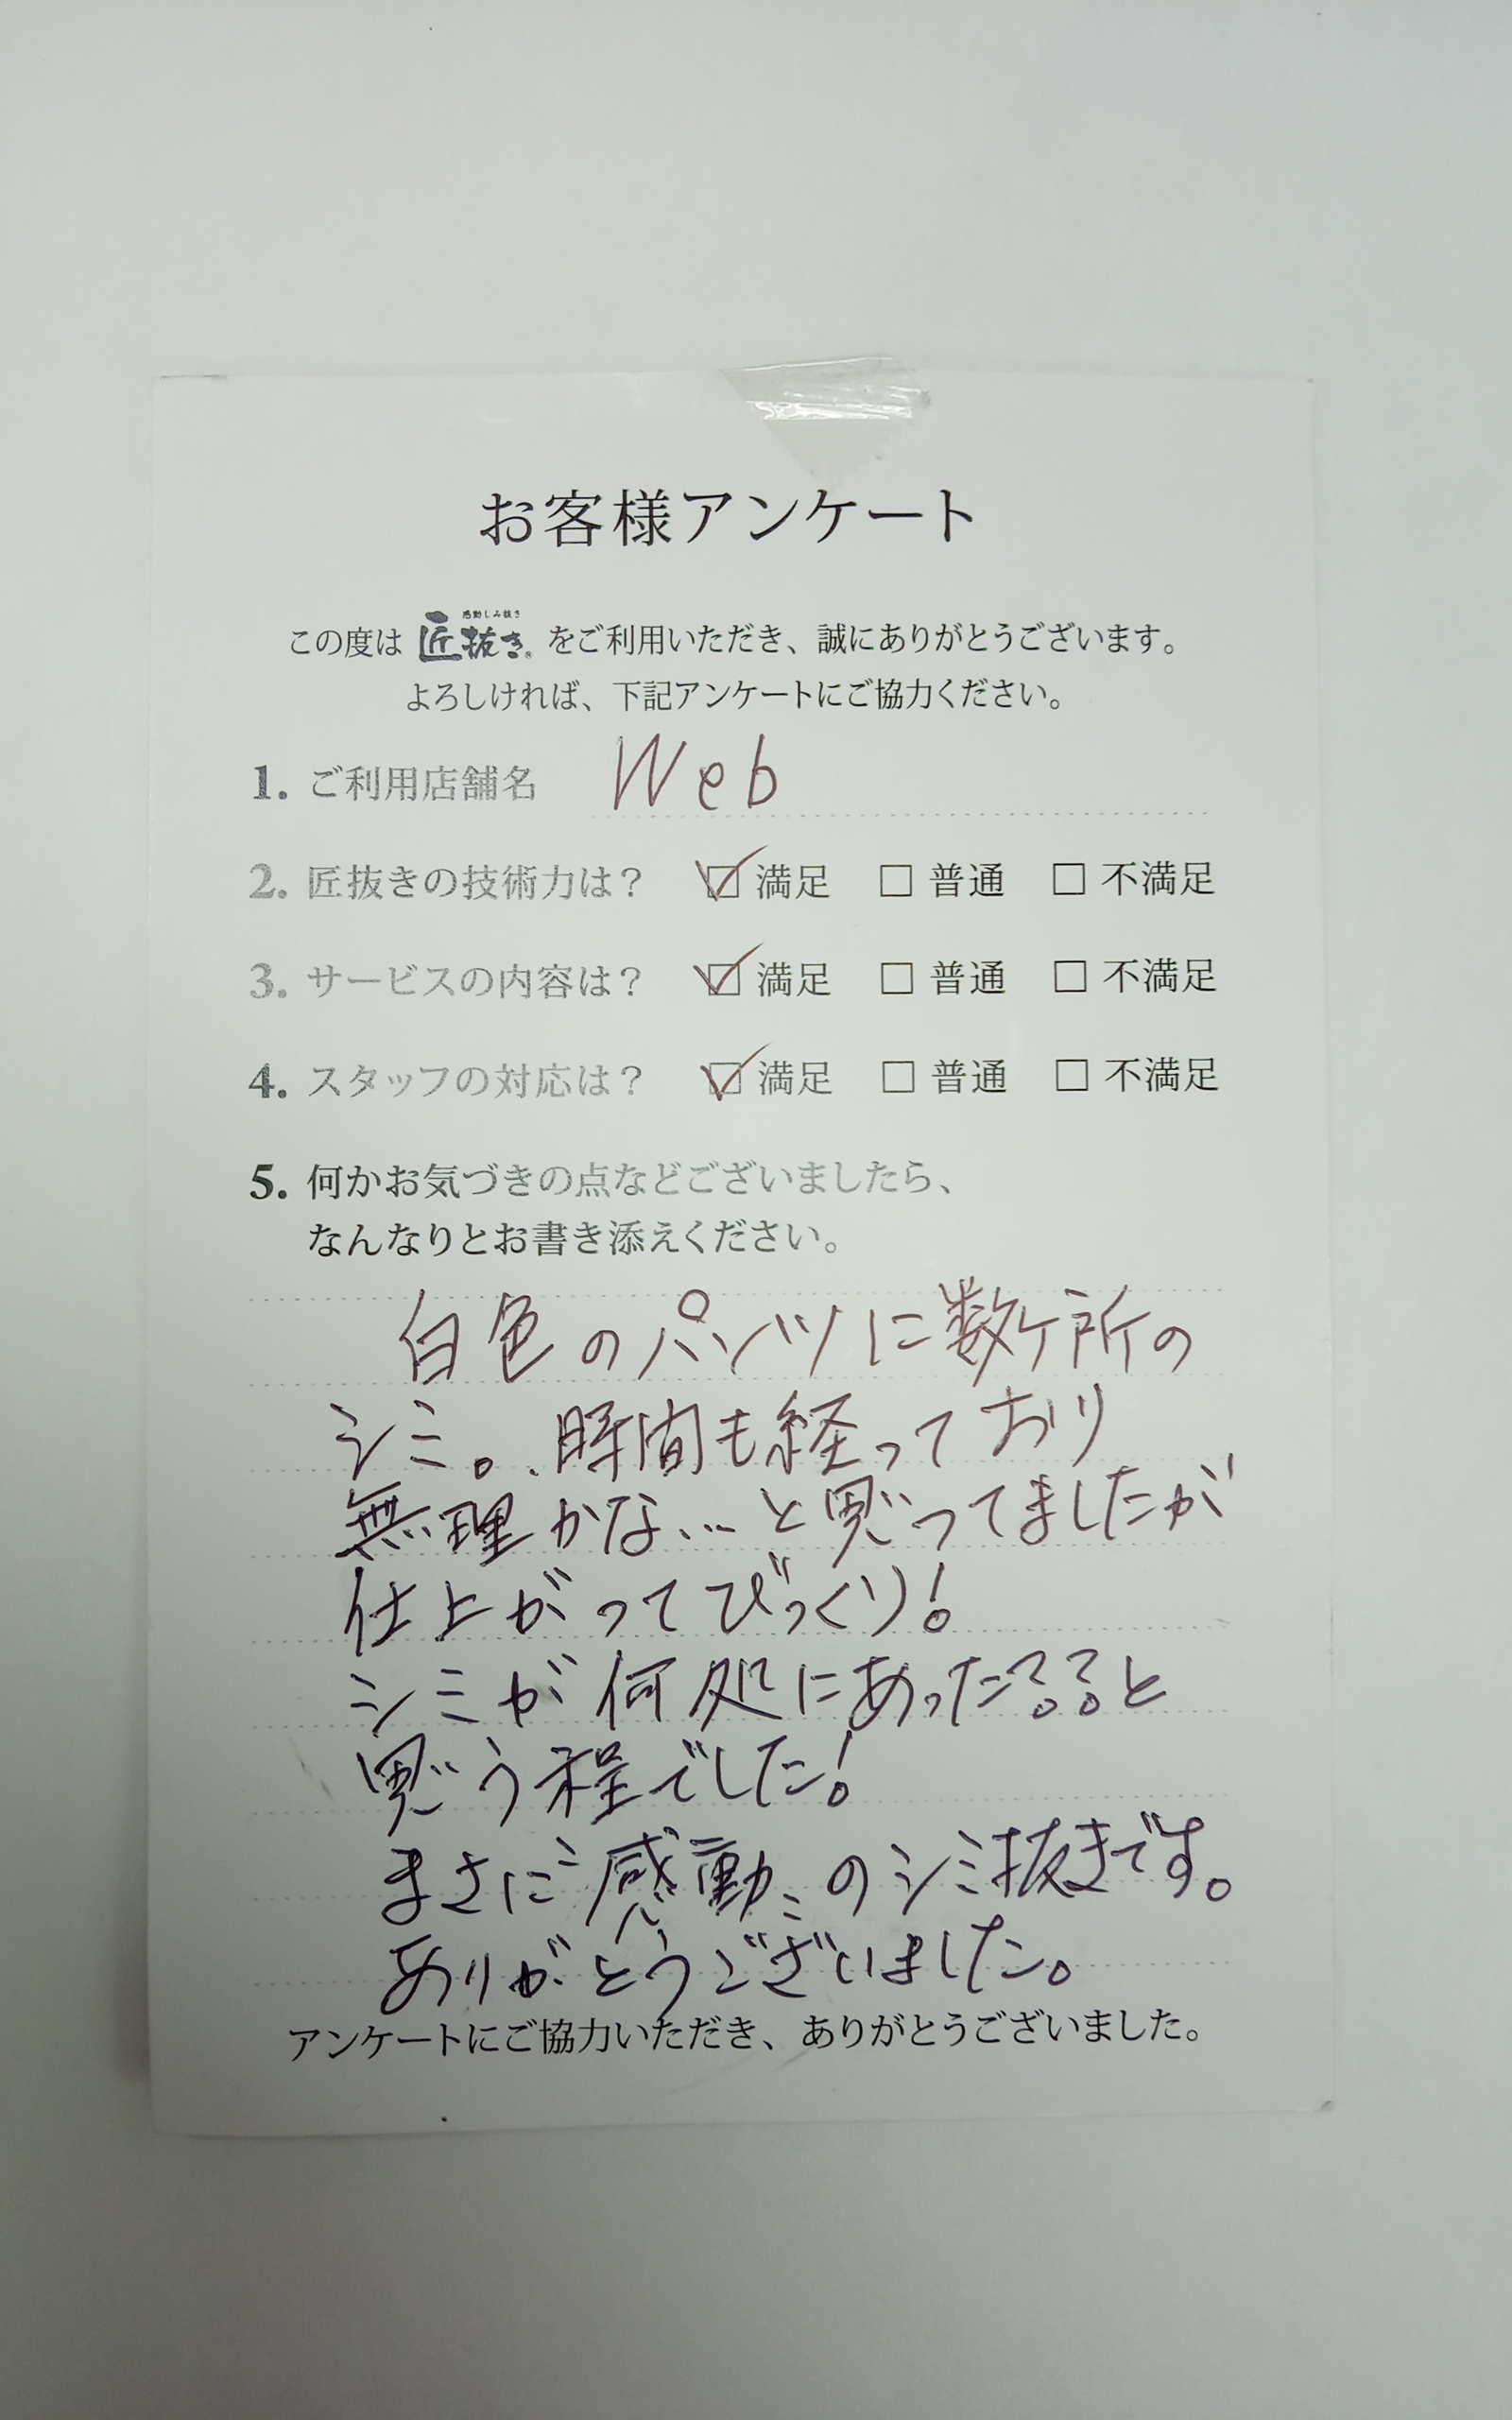 お客様アンケート
この度は 感動しみ抜き 匠抜き® をご利用いただき、誠にありがとうございます。
よろしければ、下記アンケートにご協力ください。
1. ご利用店舗名 Web
2. 匠抜きの技術力は? ☑ 満足 □ 普通 □ 不満足
3. サービスの内容は? ☑ 満足 □ 普通 □ 不満足
4. スタッフの対応は? ☑ 満足 □ 普通 □ 不満足
5. 何かお気づきの点などございましたら、
なんなりとお書き添えください。
白色のパンツに数ケ所の
シミ。. 時間も経っており
無理かな…と思ってましたが
仕上がってびっくり!
シミが何処にあった??と
思う程でした!
まさに〝感動〟のシミ抜きです。
ありがとうございました。
アンケートにご協力いただき、ありがとうございました。